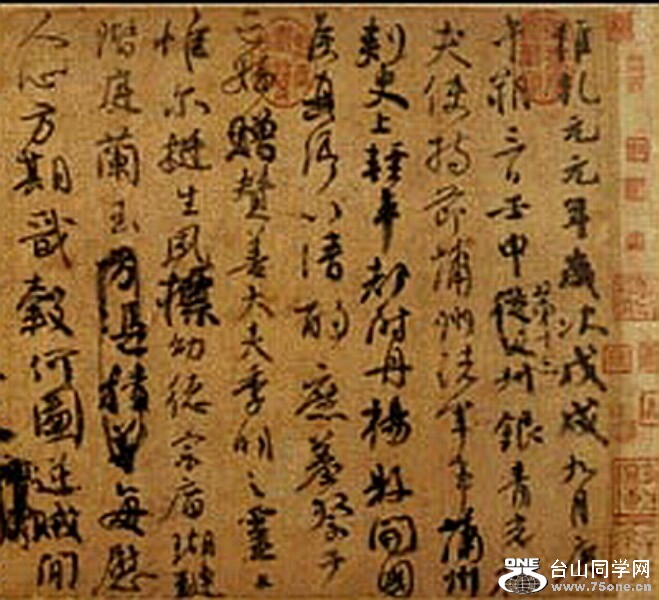 維乾元元年歲次戊戌九月庚
午朔三日壬申第十三叔銀青光
夫使持節蒲州諸軍事蒲州
刺史上輕車都尉丹楊縣開國
侯真卿以清酌庶羞祭于
亡姪贈贊善大夫季明之靈曰
惟爾挺生夙標幼德宗廟瑚璉
階庭蘭玉每慰
人心方期戩穀何圖逆賊閒
ONE
台山同学网
www.75one.cn